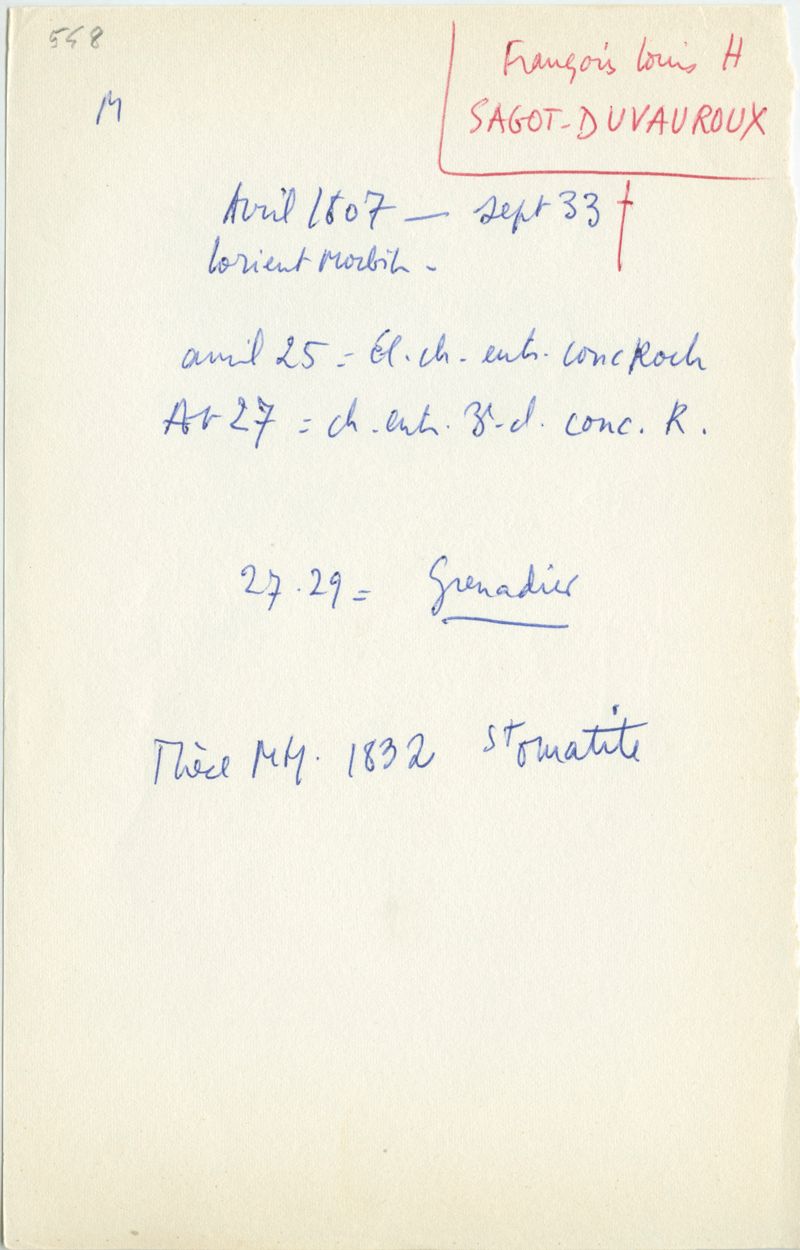 548
M
François Louis H
SAGOT-DUVAUROUX
Avril 1807 — sept 33 †
Lorient Morbih -
avril 25 = El. ch. entr. conc Roch
Av 27 = ch. entr. 3e cl. conc. R.
27.29 = Grenadier
Thèse MM. 1832 Stomatite